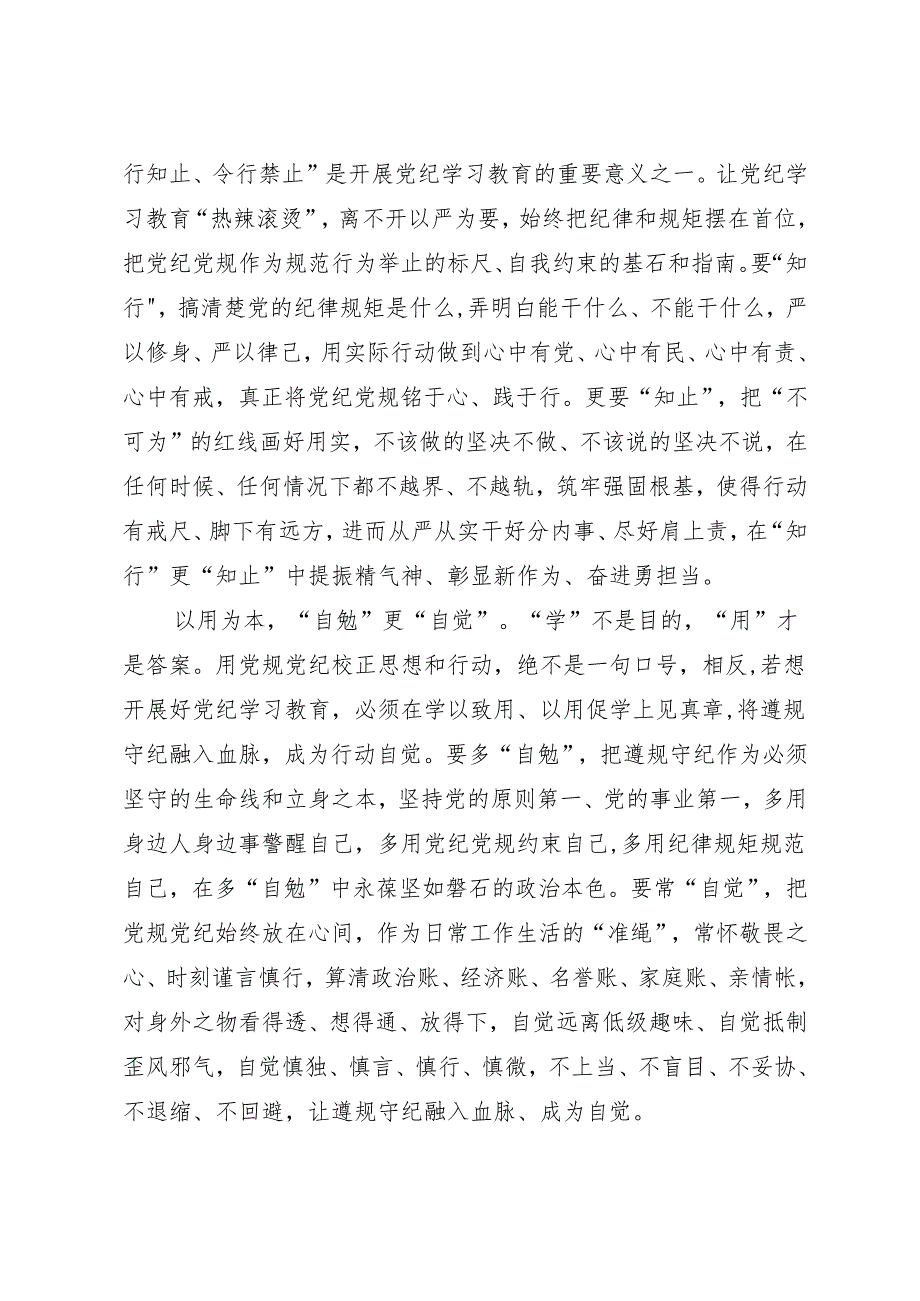 行知止、令行禁止”是开展党纪学习教育的重要意义之一。让党纪学
习教育“热辣滚烫”，离不开以严为要，始终把纪律和规矩摆在首位，
把党纪党规作为规范行为举止的标尺、自我约束的基石和指南。要“知
行"，搞清楚党的纪律规矩是什么,弄明白能干什么、不能干什么，严
以修身、严以律己，用实际行动做到心中有党、心中有民、心中有责、
心中有戒，真正将党纪党规铭于心、践于行。更要“知止”，把“不
可为”的红线画好用实，不该做的坚决不做、不该说的坚决不说，在
任何时候、任何情况下都不越界、不越轨，筑牢强固根基，使得行动
有戒尺、脚下有远方，进而从严从实干好分内事、尽好肩上责，在“知
行”更“知止”中提振精气神、彰显新作为、奋进勇担当。
以用为本，“自勉”更“自觉”。“学”不是目的，“用”才
是答案。用党规党纪校正思想和行动，绝不是一句口号，相反,若想
开展好党纪学习教育，必须在学以致用、以用促学上见真章,将遵规
守纪融入血脉，成为行动自觉。要多“自勉”，把遵规守纪作为必须
坚守的生命线和立身之本，坚持党的原则第一、党的事业第一，多用
身边人身边事警醒自己，多用党纪党规约束自己,多用纪律规矩规范
自己，在多“自勉”中永葆坚如磐石的政治本色。要常“自觉”，把
党规党纪始终放在心间，作为日常工作生活的“准绳”，常怀敬畏之
心、时刻谨言慎行，算清政治账、经济账、名誉账、家庭账、亲情帐，
对身外之物看得透、想得通、放得下，自觉远离低级趣味、自觉抵制
歪风邪气，自觉慎独、慎言、慎行、慎微，不上当、不盲目、不妥协、
不退缩、不回避，让遵规守纪融入血脉、成为自觉。